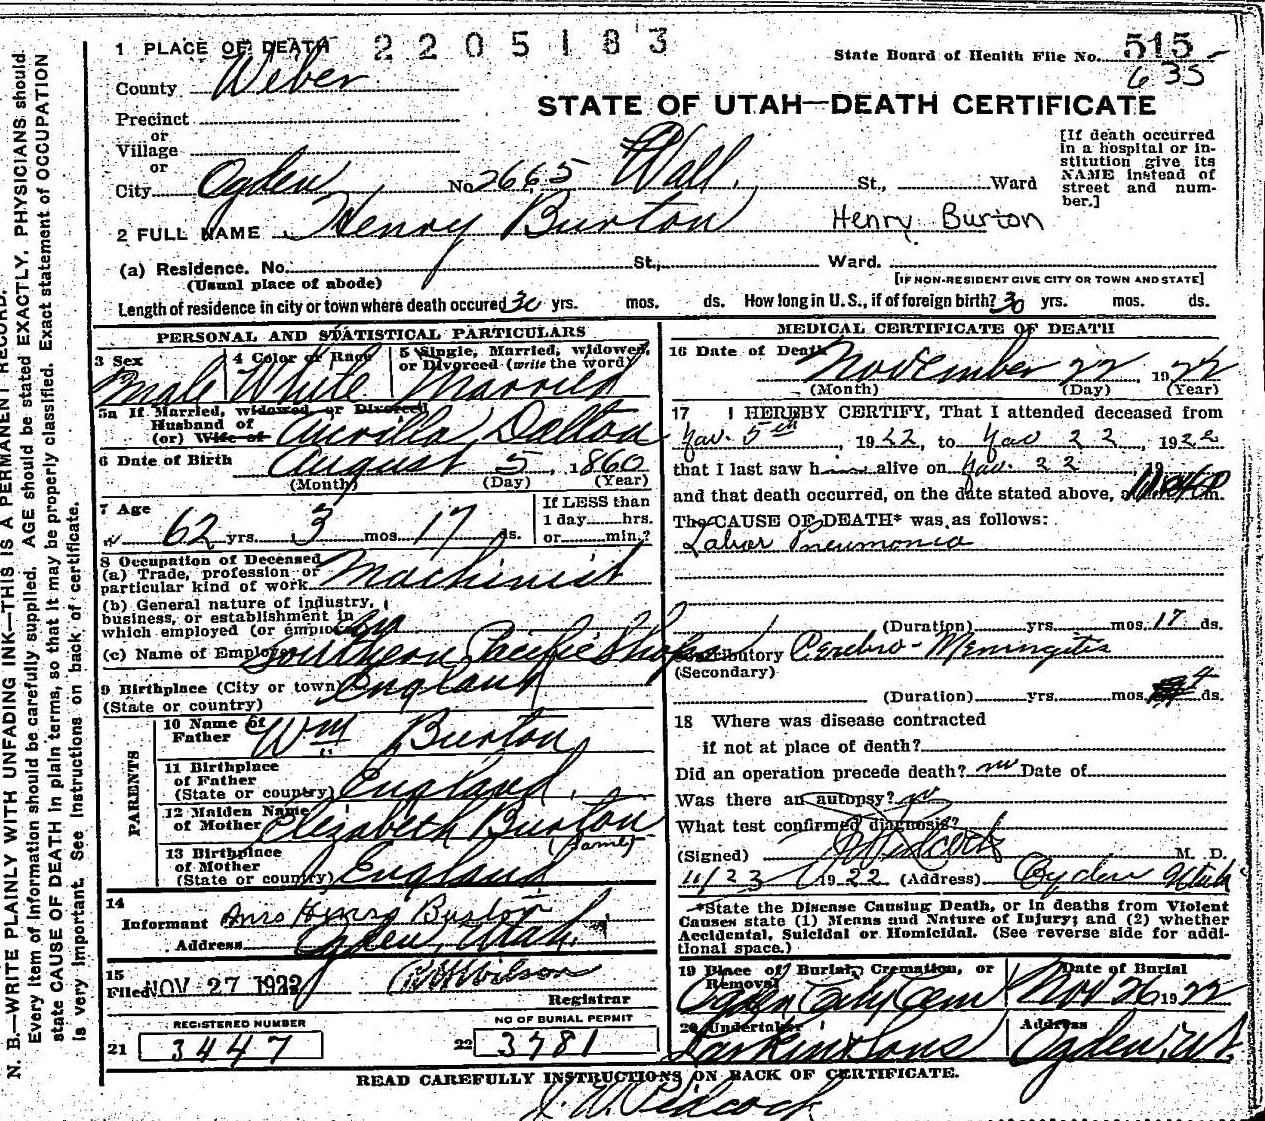 1 PLACE OF DEATH 2205183
State Board of Health File No. 515
635
County Weber
STATE OF UTAH—DEATH CERTIFICATE
Precinct
or
Village
or
City Ogden No 2665 Wall St., Ward
[If death occurred
in a hospital or in-
stitution give its
NAME instead of
street and num-
ber.]
2 FULL NAME Henry Burton Henry Burton
(a) Residence. No. St., Ward.
(Usual place of abode) [IF NON-RESIDENT GIVE CITY OR TOWN AND STATE]
Length of residence in city or town where death occured 30 yrs. mos. ds. How long in U.S., if of foreign birth? 30 yrs. mos. ds.
PERSONAL AND STATISTICAL PARTICULARS
3 Sex 4 Color or Race 5 Single, Married, widowed,
or Divorced (write the word)
Male White Married
5a If Married, widowed, or Divorced
Husband of
(or) Wife of Aurilla Dalton
6 Date of Birth August 5, 1860
(Month) (Day) (Year)
7 Age
62 yrs. 3 mos. 17 ds.
If LESS than
1 day hrs.
or min.?
8 Occupation of Deceased
(a) Trade, profession or
particular kind of work Machinist
(b) General nature of industry,
business, or establishment in
which employed (or employer)
(c) Name of Employer Southern Pacific Shops
9 Birthplace (City or town)
(State or country) England
PARENTS
10 Name of
Father Wm Burton
11 Birthplace
of Father
(State or country) England
12 Maiden Name
of Mother Elizabeth Burton
(same)
13 Birthplace
of Mother
(State or country) England
14
Informant Mrs Henry Burton
Address Ogden, Utah.
15
Filed NOV 27 1922 Wilson
Registrar
REGISTERED NUMBER NO OF BURIAL PERMIT
21 3447 22 3781
MEDICAL CERTIFICATE OF DEATH
16 Date of Death
November 22, 1922
(Month) (Day) (Year)
17 I HEREBY CERTIFY, That I attended deceased from
Nov. 5th, 1922, to Nov 22, 1922
that I last saw him alive on Nov. 22, 19
and that death occurred, on the date stated above, at m.
The CAUSE OF DEATH* was as follows:
Lobar Pneumonia
(Duration) yrs. mos. 17 ds.
Contributory Cerebro-Meningitis
(Secondary)
(Duration) yrs. mos. 4 ds.
18 Where was disease contracted
if not at place of death?
Did an operation precede death? no Date of
Was there an autopsy? no
What test confirmed diagnosis?
(Signed) Pidcock M. D.
11/23 1922 (Address) Ogden Utah
*State the Disease Causing Death, or in deaths from Violent
Causes state (1) Means and Nature of Injury; and (2) whether
Accidental, Suicidal or Homicidal. (See reverse side for addi-
tional space.)
19 Place of Burial, Cremation, or
Removal Date of Burial
Ogden City Cem Nov 26 1922
20 Undertaker Address
Larkin & Sons Ogden, Ut.
READ CAREFULLY INSTRUCTIONS ON BACK OF CERTIFICATE.
J. W. Pidcock
N. B.—WRITE PLAINLY WITH UNFADING INK—THIS IS A PERMANENT RECORD.
Every item of information should be carefully supplied. AGE should be stated EXACTLY. PHYSICIANS should
state CAUSE OF DEATH in plain terms, so that it may be properly classified. Exact statement of OCCUPATION
is very important. See instructions on back of certificate.